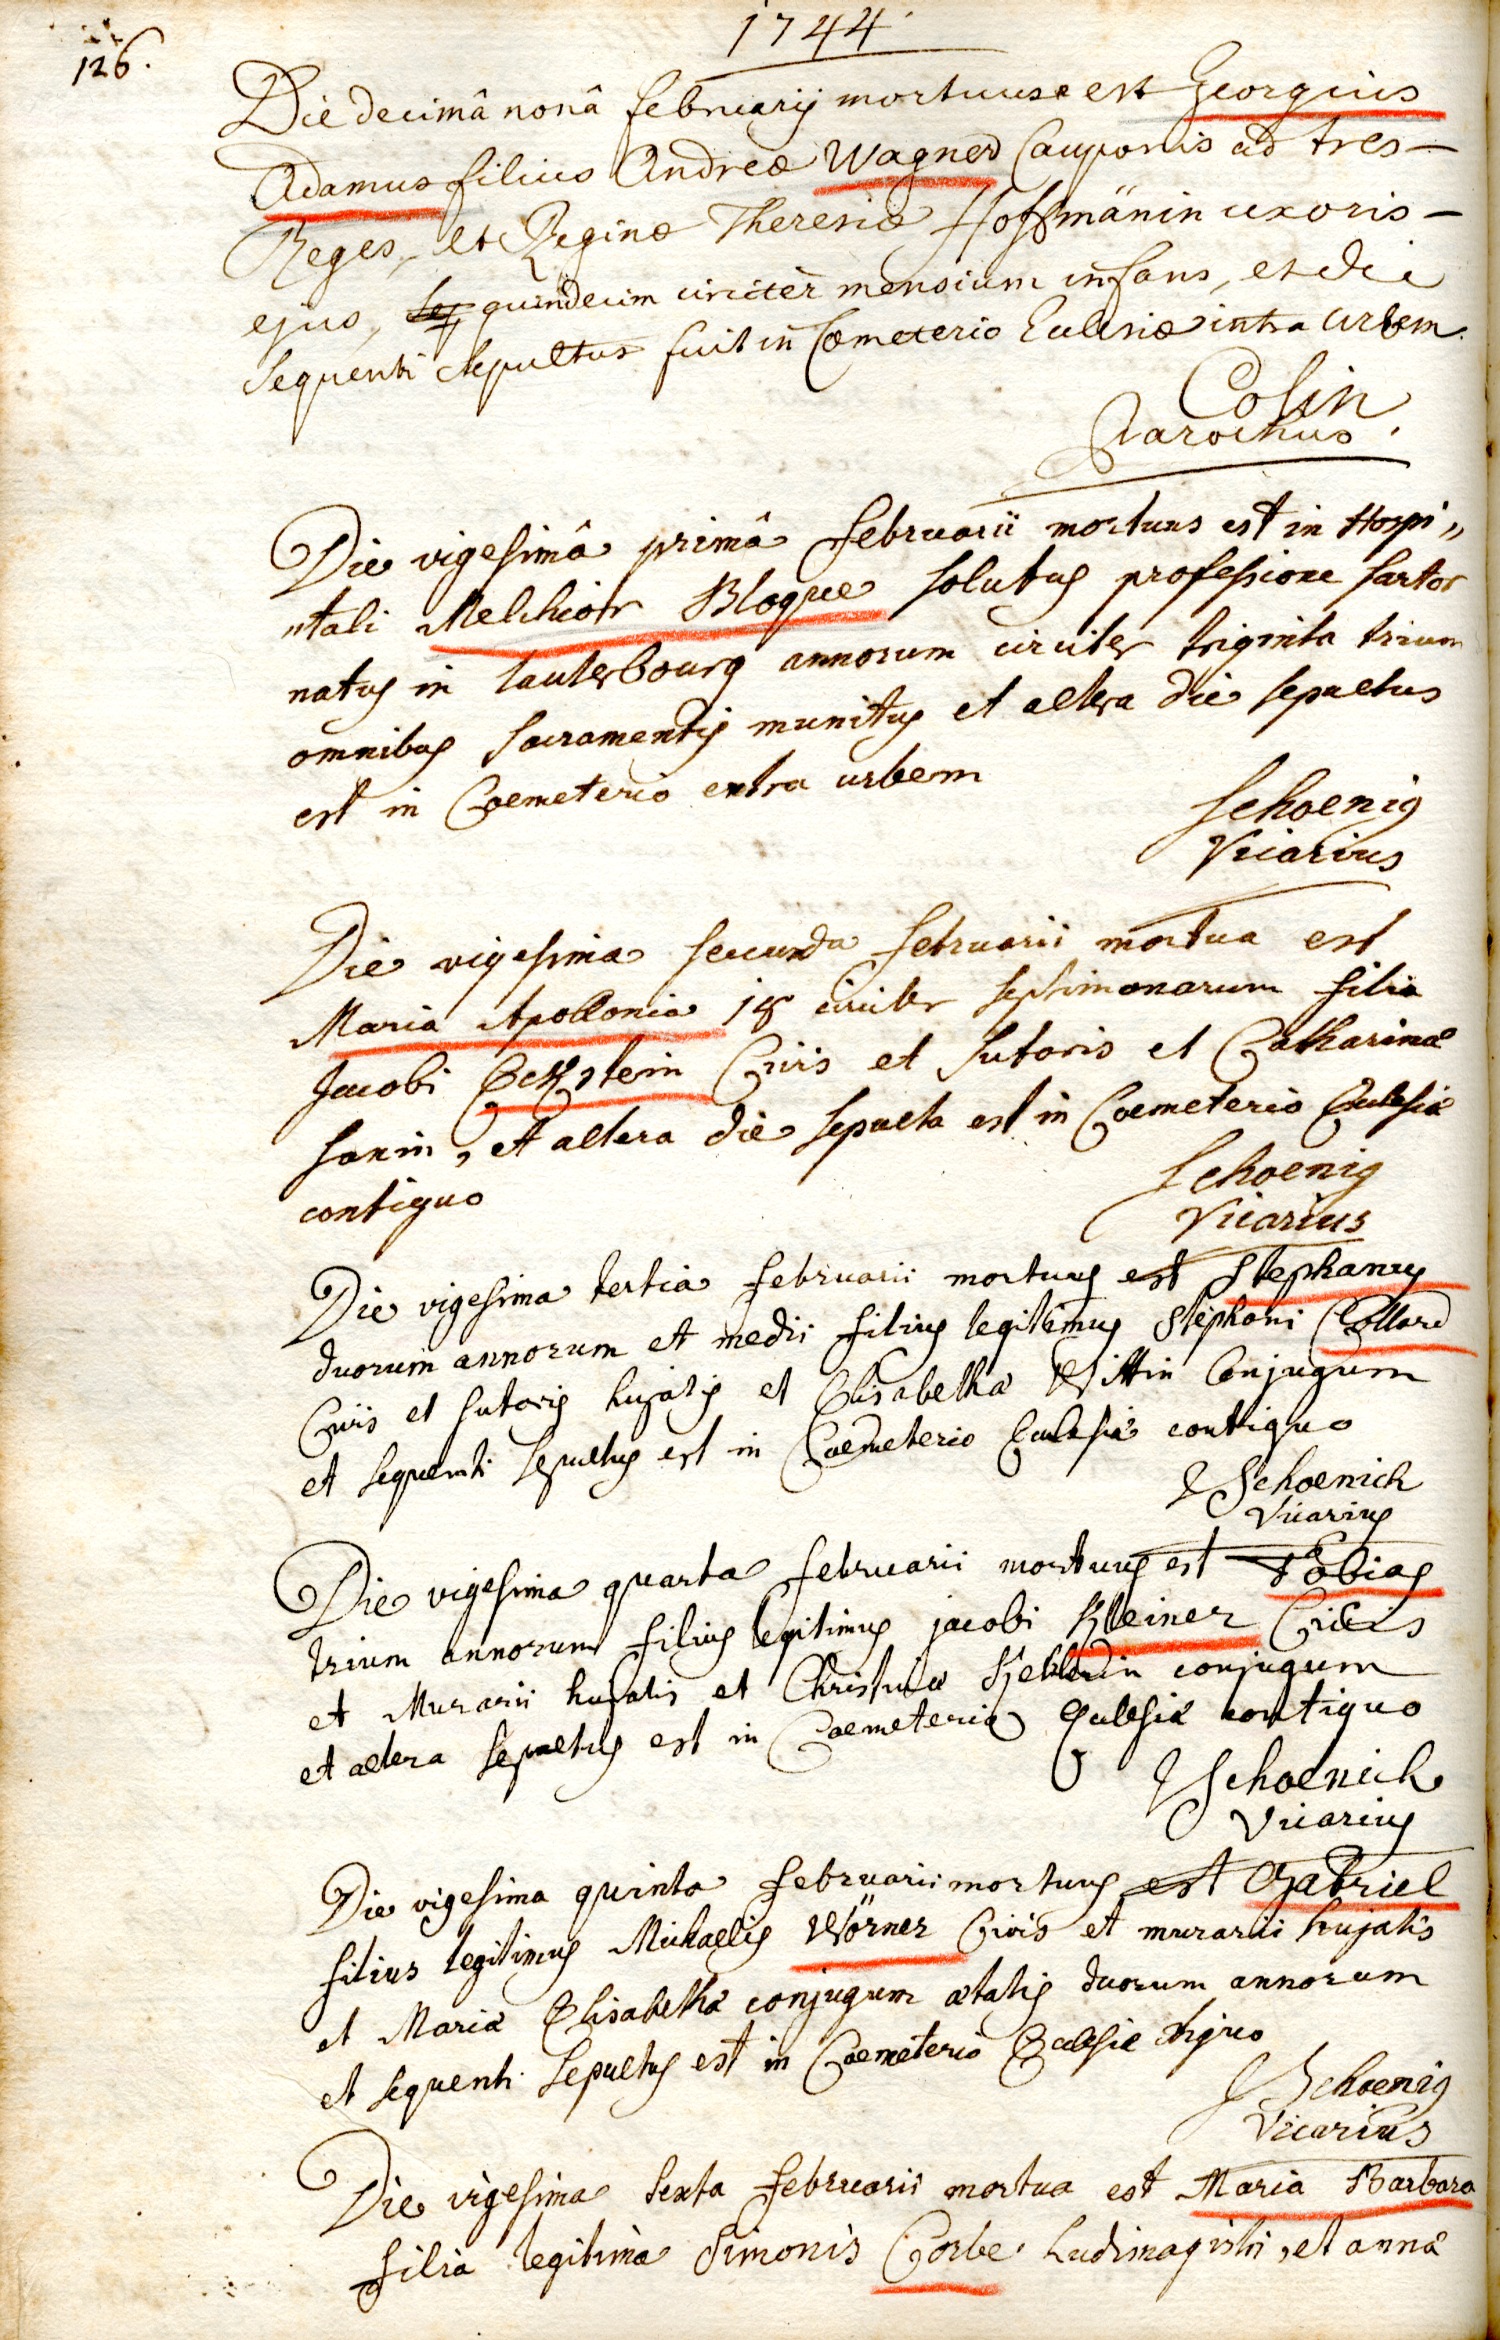 1744.
126.
Die decimâ nonâ februarij mortuus est Georgius
Adamus filius Andreæ Wagner Cauponis ad tres
Reges, et Reginæ Theresiæ Hoffmänin uxoris
ejus, quindecim circiter mensium infans, et die
sequenti sepultus fuit in Cœmeterio Ecclesiæ intra urbem.
Colin
Parochus.
Die vigesimâ primâ februarii mortuus est in Hospi„
„tali Melchior Bloque solutus professione sartor
natus in Lauterbourg annorum circiter triginta trium
omnibus sacramentis munitus et altera die sepultus
est in Coemeterio extra urbem
Schoenig
Vicarius
Die vigesima secunda februarii mortua est
Maria Apollonia 18 circiter septimanarum filia
Jacobi Eckstein Civis et sutoris et Catharinæ
saxin, et altera die sepulta est in Coemeterio Ecclesiæ
contiguo
Schoenig
Vicarius
Die vigesima tertia februarii mortuus est Stephanus
duorum annorum et medii filius legitimus Stephani Collard
Civis et sutoris hujatis et Elisabetha Wittin Conjugum
et sequenti sepultus est in Coemeterio Ecclesiæ contiguo
J Schoenich
Vicarius
Die vigesima quarta februarii mortuus est Tobias
trium annorum filius legitimus jacobi Kleiner Civis
et Murarii hujatis et Christinæ conjugum
et altera sepultus est in Coemeterio Ecclesiæ contiguo
J Schoenich
Vicarius
Die vigesima quinta februarii mortuus est Gabriel
filius legitimus Michaelis Wörner Civis et murarii hujatis
et Mariæ Elisabethæ conjugum ætatis duorum annorum
et sequenti sepultus est in Coemeterio Ecclesiæ
J Schoenig
Vicarius
Die vigesima sexta februarii mortua est Maria Barbara
filia legitima Simonis Corbe Ludimagistri, et annæ